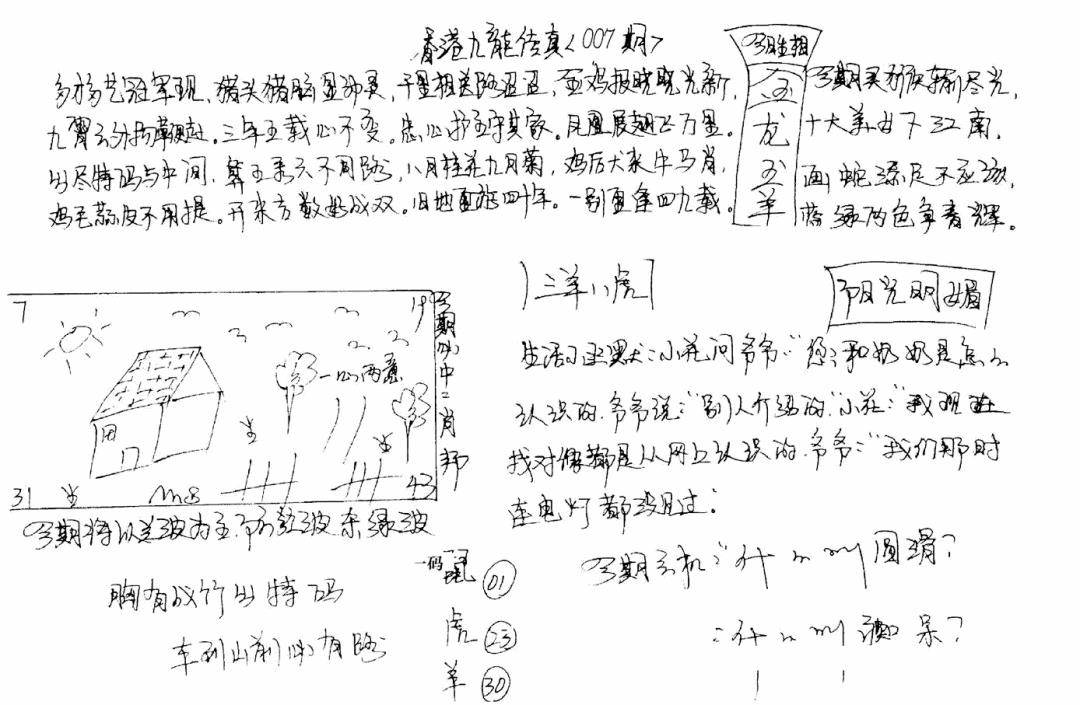 香港九龙传真(007期)
多才多艺冠军现、猪头猪脑显神灵、千里相关路迢迢、金鸡报晓晓光新,
九霄云外扬鞭赴。三年五载心不变。忠心护主守其家。凤凰展翅飞万里。
出尽特码与中间,算王乘六不同路,八月桂花九月菊,鸡后犬来牛马肖,
鸡毛蒜皮不用提。开来方数好成双。旧地重游四十年。一别重
四九载。
今期
龙
羊
今期买
尽光,
十大美
下江南,
画蛇添足不应该,
蓝绿两色争春辉。
7
19
31
43
一心两意
今期必中二肖
三羊八虎
阳光明媚
生活幽默:小花问爷爷:"您和奶奶是怎么
认识的.爷爷说:"别人介绍的"小花:"我现在
找对像都是从网上认识的.爷爷:"我们那时
连电灯都没见过:
今期将以
波为主
红波
绿波
胸有成竹出特码
车到山前必有路
一码
鼠 01
虎 23
羊 30
今期玄机:"什么叫圆滑?
:什么叫
呆?